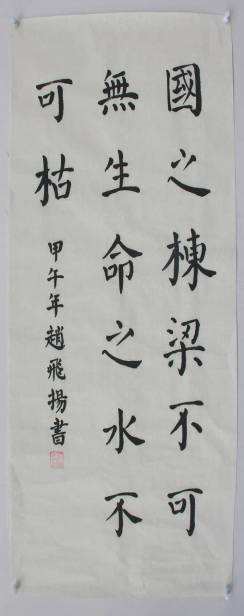 國之棟梁不可
無生命之水不
可枯
甲午年趙飛揚書